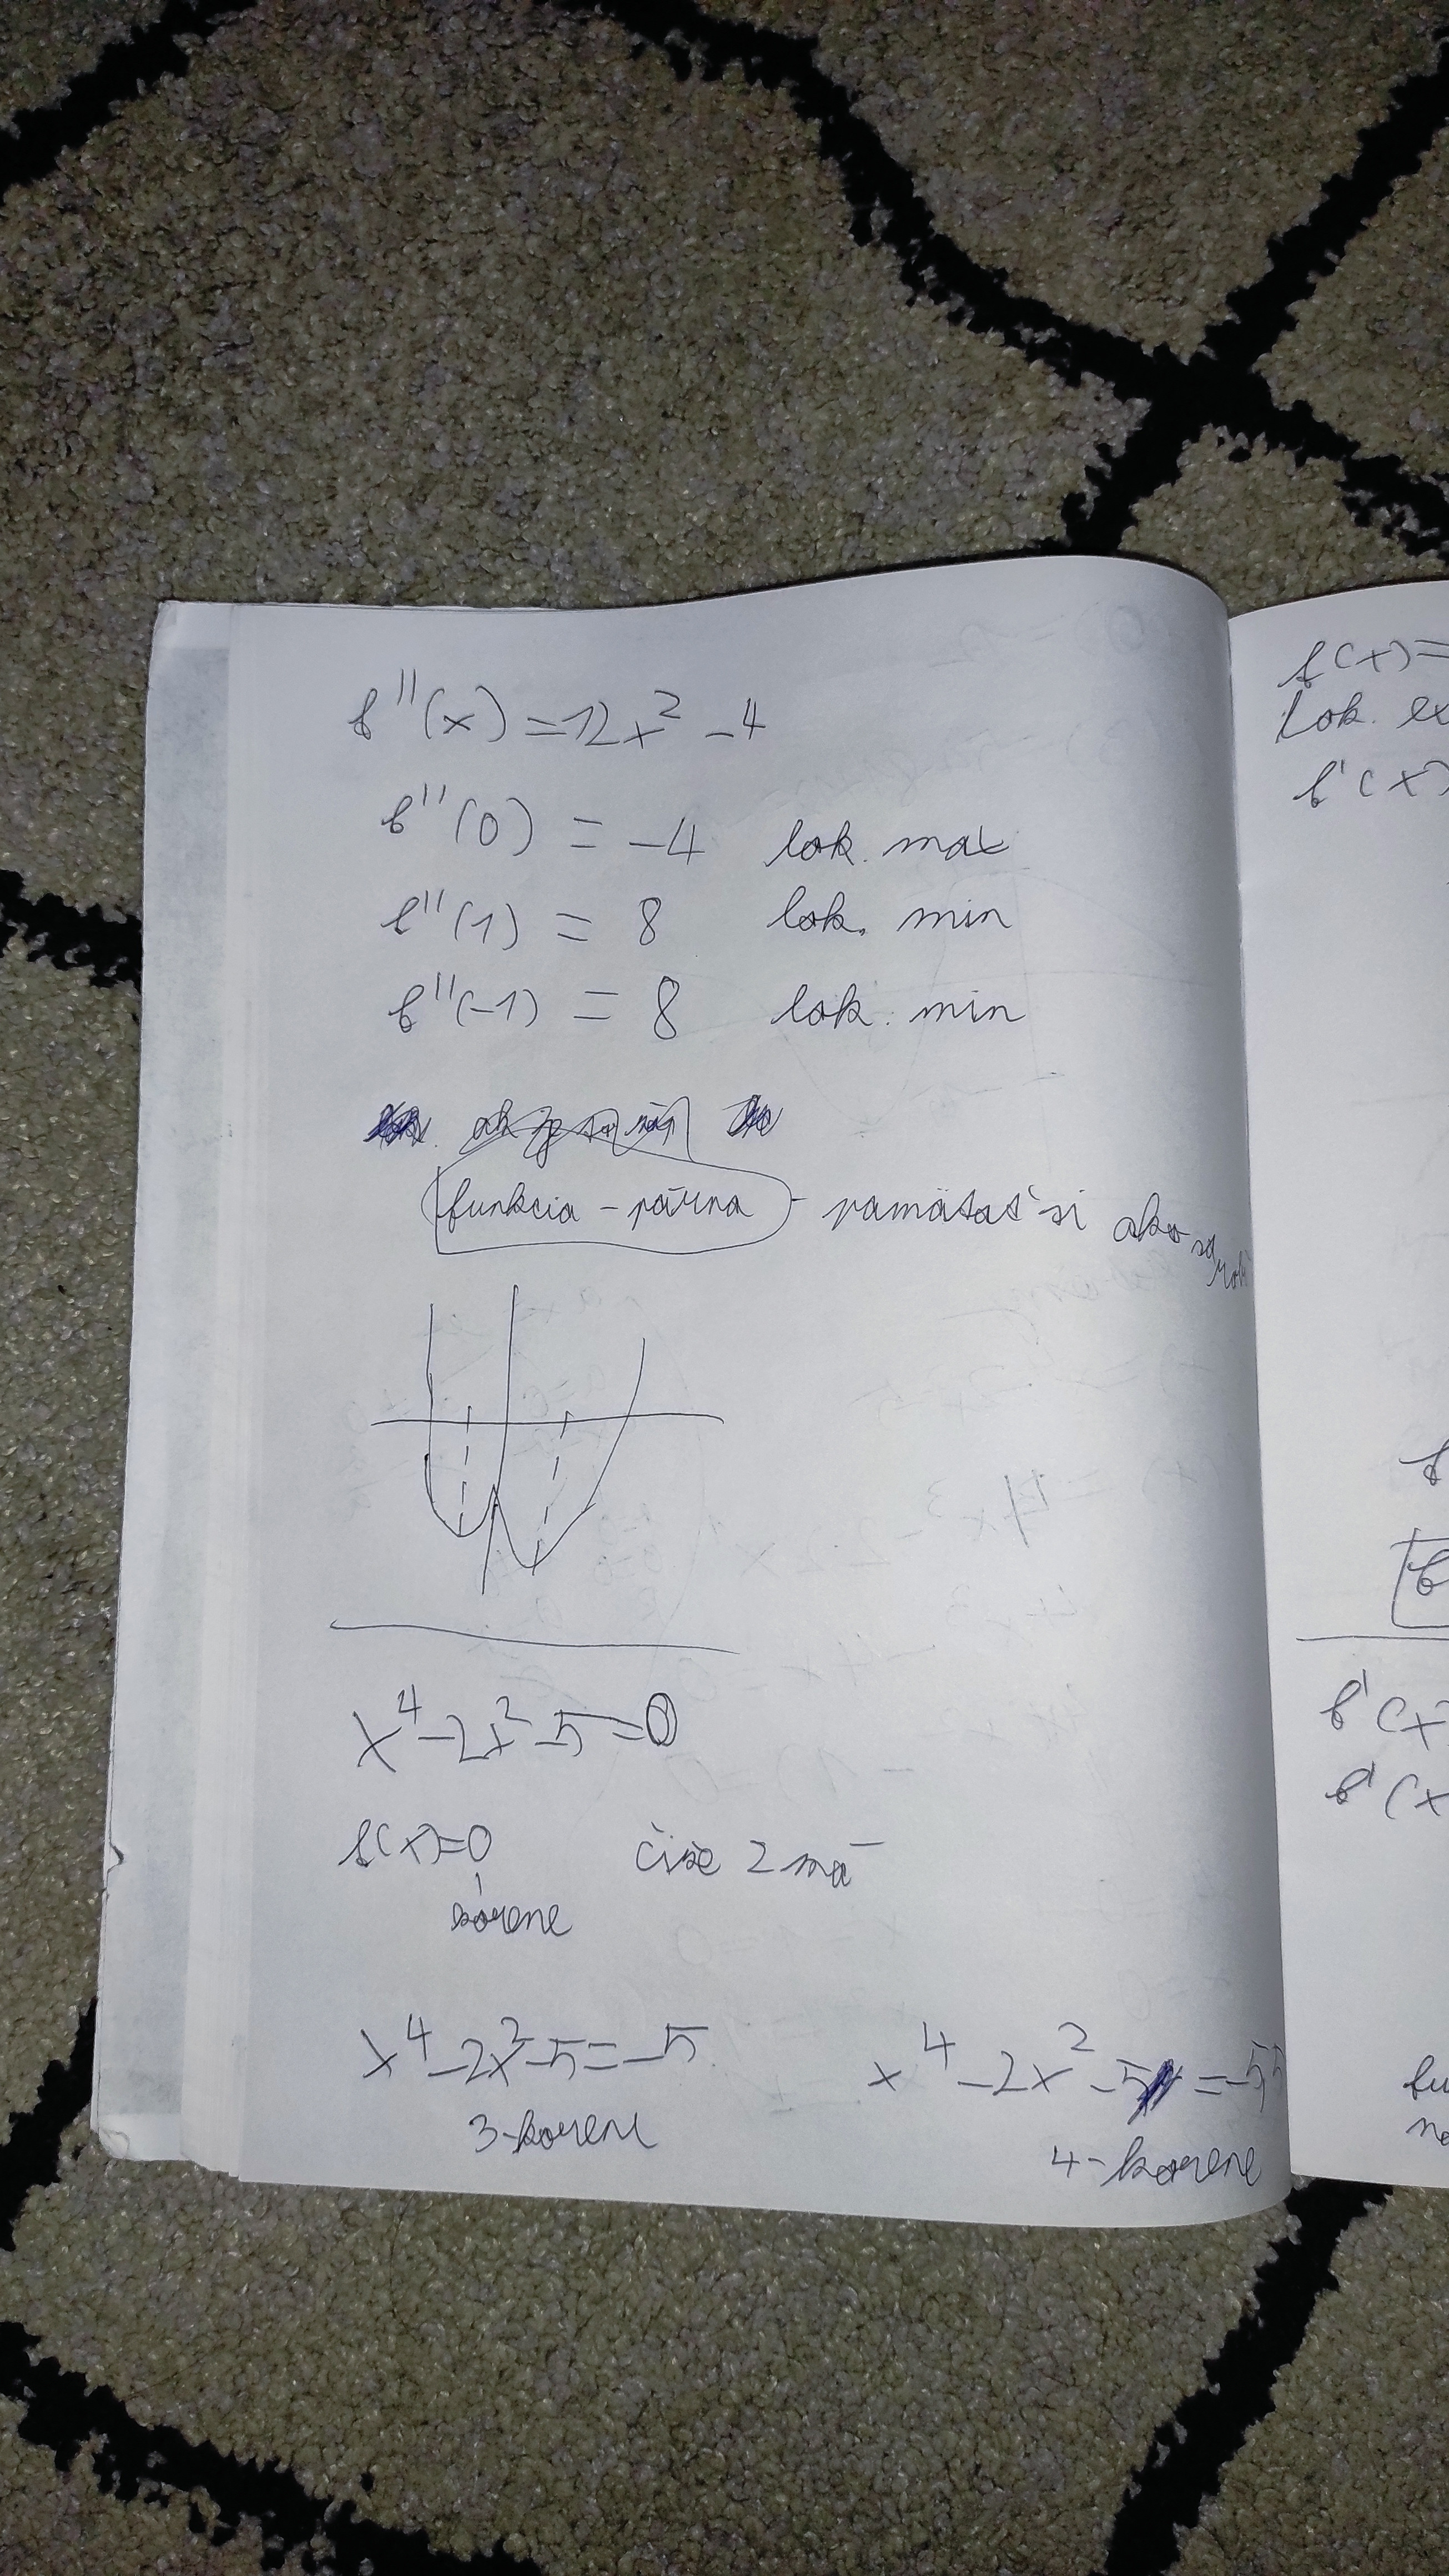 f''(x) = 12x² - 4
f''(0) = -4 lok. max
f''(1) = 8 lok. min
f''(-1) = 8 lok. min
funkcia - párna - pamätať si ako sa
x⁴ - 2x² - 5 = 0
f(x) = 0 čiže 2 má
korene
x⁴ - 2x² - 5 = -5
3 - korene
x⁴ - 2x² - 5 = -5
4 - korene
f(x) =
Lok. ex
f'(x)
f'(x
f'(x